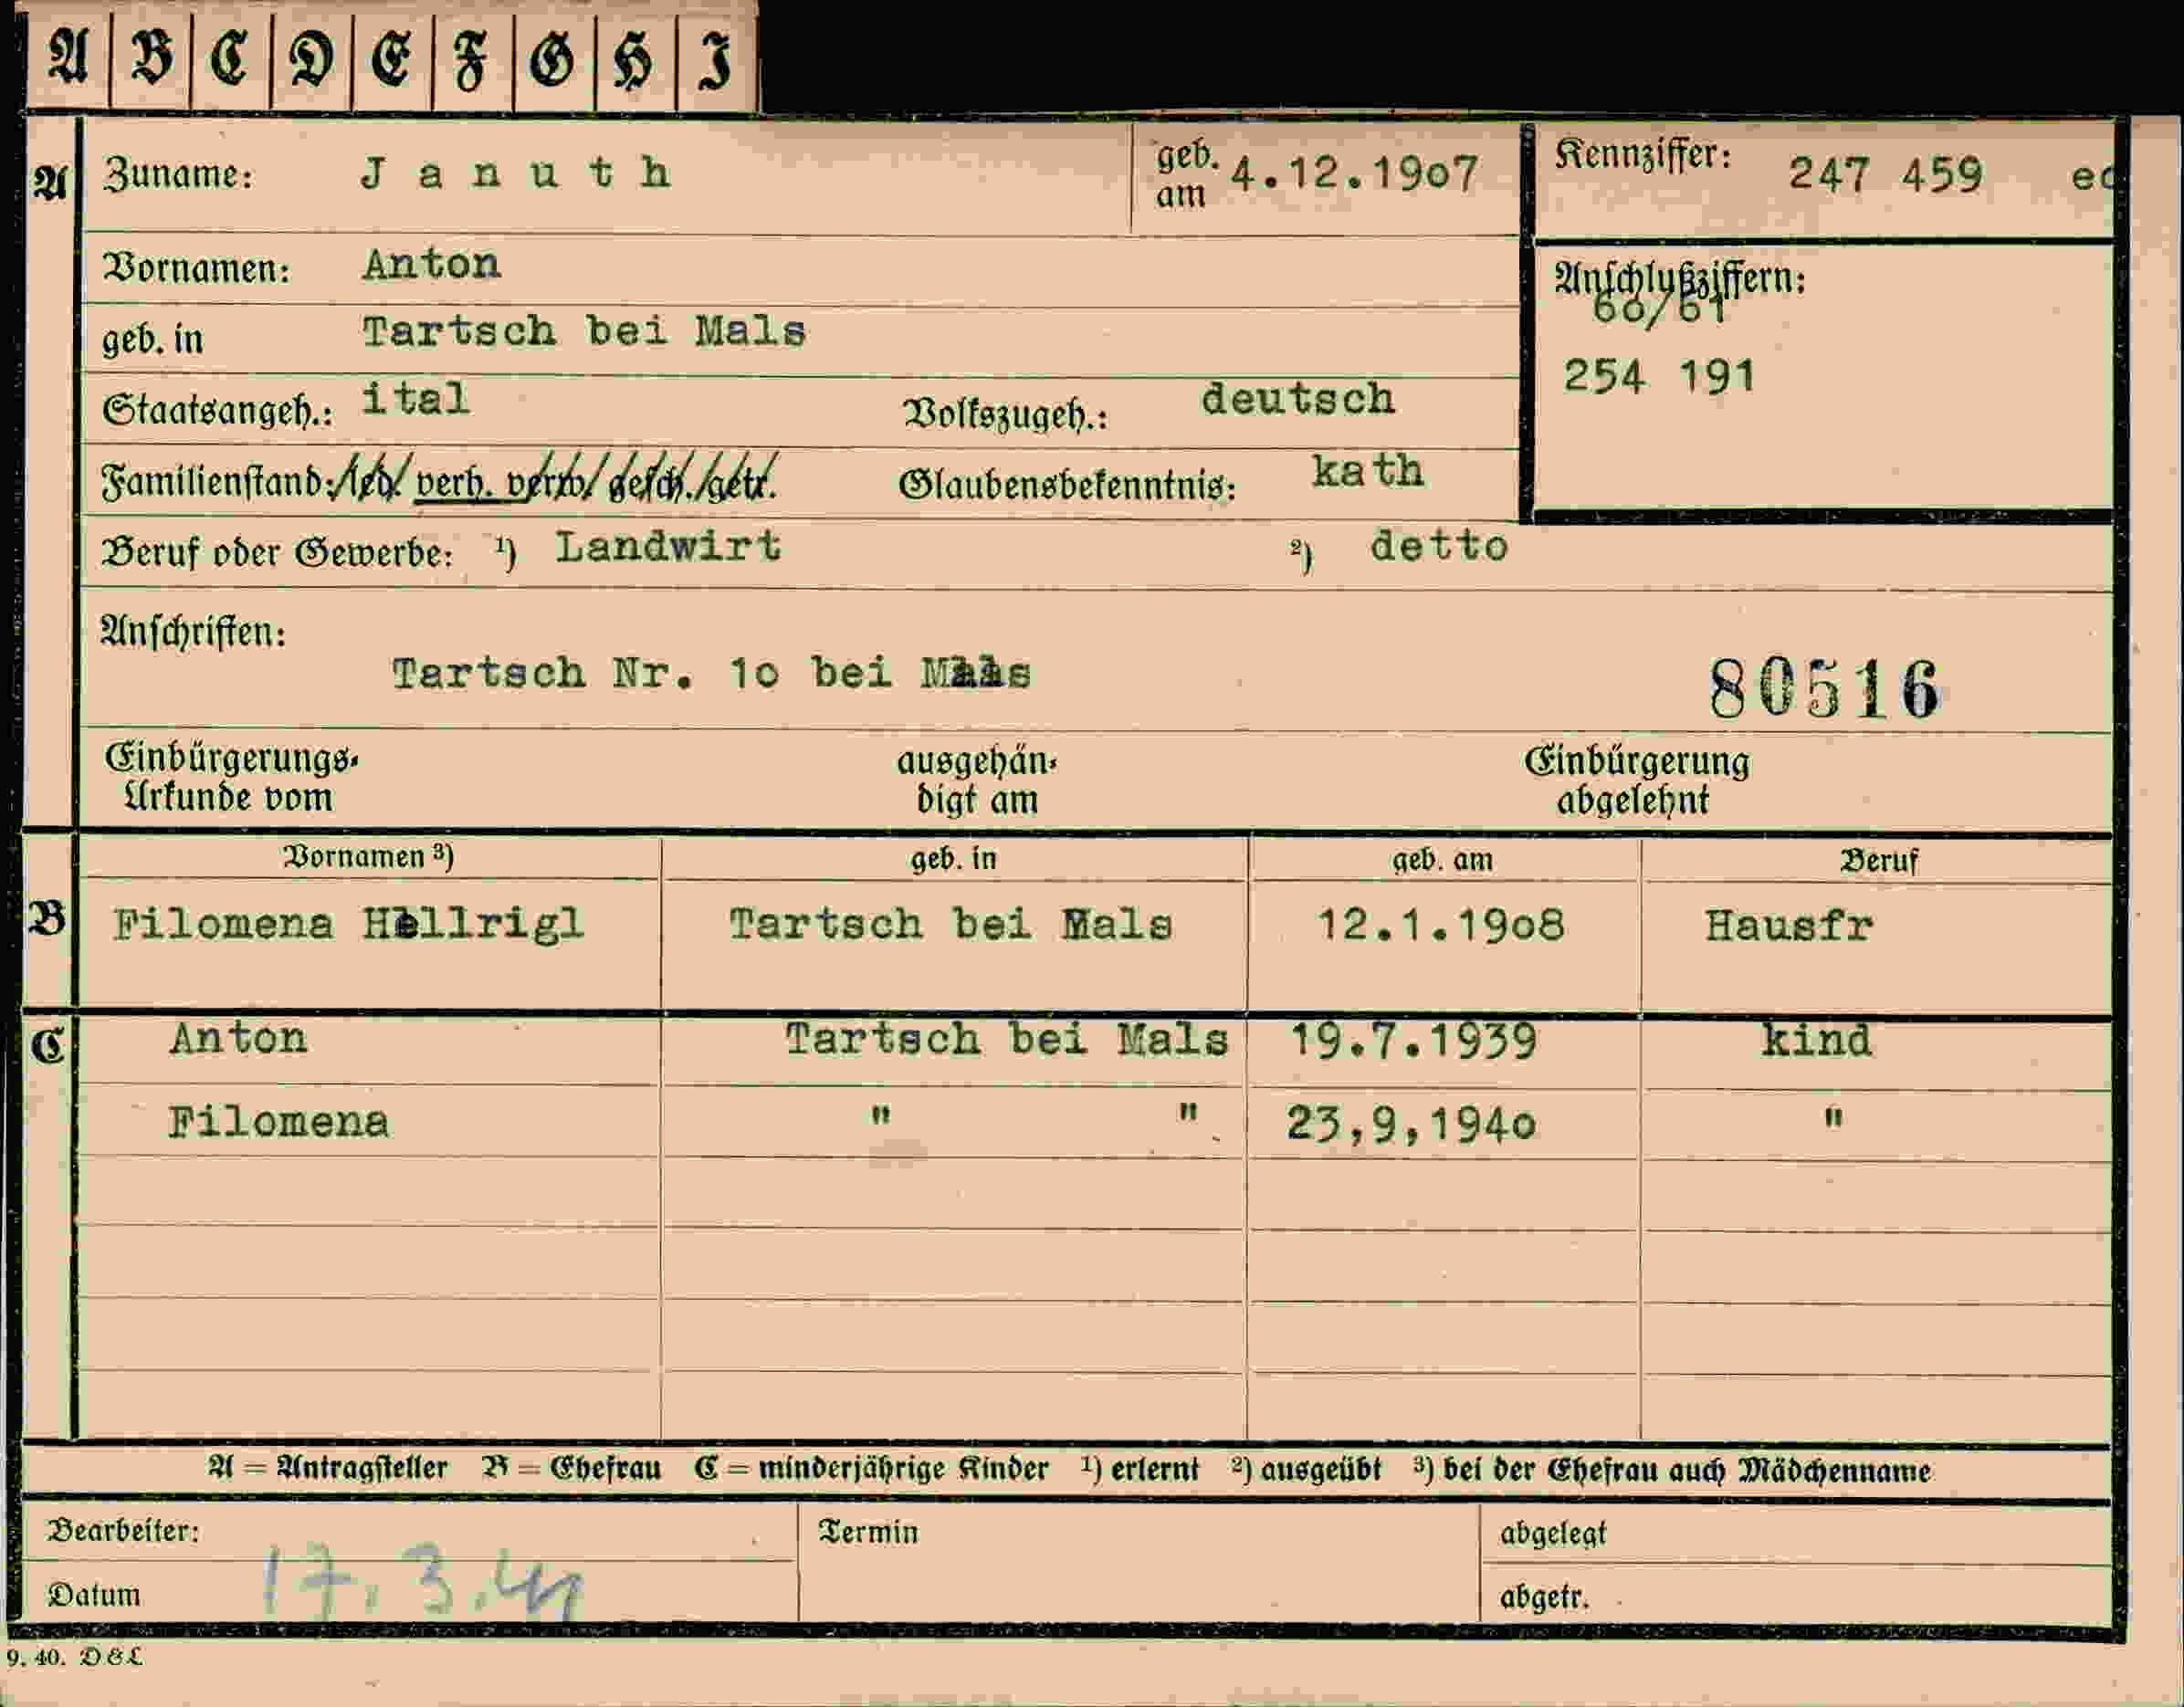 A B C D E F G H I
A Zuname: Januth geb. am 4.12.1907 Kennziffer: 247 459
Vornamen: Anton Anschlußziffern:
60/61
geb. in Tartsch bei Mals 254 191
Staatsangeh.: ital Volkszugeh.: deutsch
Familienstand: led. verh. verw. gesch. getr. Glaubensbekenntnis: kath
Beruf oder Gewerbe: ¹) Landwirt ²) detto
Anschriften:
Tartsch Nr. 10 bei Mals 80516
Einbürgerungs- ausgehän- Einbürgerung
Urkunde vom digt am abgelehnt
Vornamen ³) geb. in geb. am Beruf
B Filomena Hellrigl Tartsch bei Mals 12.1.1908 Hausfr
C Anton Tartsch bei Mals 19.7.1939 kind
Filomena " " 23,9,1940 "
A = Antragsteller B = Ehefrau C = minderjährige Kinder ¹) erlernt ²) ausgeübt ³) bei der Ehefrau auch Mädchenname
Bearbeiter: Termin abgelegt
Datum 17.3.41 abgetr.
9. 40. D&L